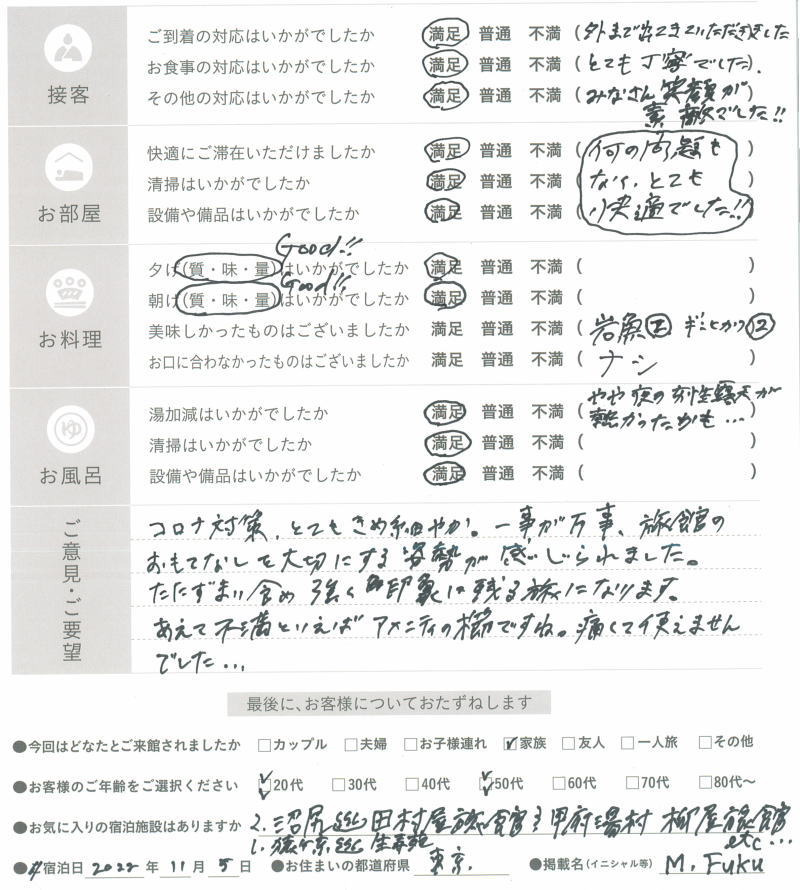 接客
ご到着の対応はいかがでしたか 満足 普通 不満 (外まで出てきていただきました
お食事の対応はいかがでしたか 満足 普通 不満 (とても丁寧でした).
その他の対応はいかがでしたか 満足 普通 不満 (みなさん笑顔が)
素敵でした!!
お部屋
快適にご滞在いただけましたか 満足 普通 不満 (何の問題も)
清掃はいかがでしたか 満足 普通 不満 (なく、とても)
設備や備品はいかがでしたか 満足 普通 不満 (快適でした!!)
お料理
Good!!
夕げ(質・味・量)はいかがでしたか 満足 普通 不満 ( )
Good!!
朝げ(質・味・量)はいかがでしたか 満足 普通 不満 ( )
美味しかったものはございましたか 満足 普通 不満 (岩魚 ギンヒカリ)
お口に合わなかったものはございましたか 満足 普通 不満 (ナシ)
お風呂
やや夜の女性露天が
湯加減はいかがでしたか 満足 普通 不満 (熱かったかも…)
清掃はいかがでしたか 満足 普通 不満 ( )
設備や備品はいかがでしたか 満足 普通 不満 ( )
ご意見・ご要望
コロナ対策、とてもきめ細やか。一事が万事、旅館の
おもてなしを大切にする姿勢が感じられました。
たたずまい含め強く印象に残る旅になります。
あえて不満といえばアメニティの櫛ですね。痛くて使えません
でした…
最後に、お客様についておたずねします
●今回はどなたとご来館されましたか □カップル □夫婦 □お子様連れ ☑家族 □友人 □一人旅 □その他
●お客様のご年齢をご選択ください ☑20代 □30代 □40代 ☑50代 □60代 □70代 □80代〜
●お気に入りの宿泊施設はありますか 2.沼尻 田村屋旅館 3 甲府湯村 柳屋旅館
1.猿ヶ京 生寿苑 etc…
●ご宿泊日 2022 年 11 月 5 日 ●お住まいの都道府県 東京. ●掲載名(イニシャル等) M. Fuku